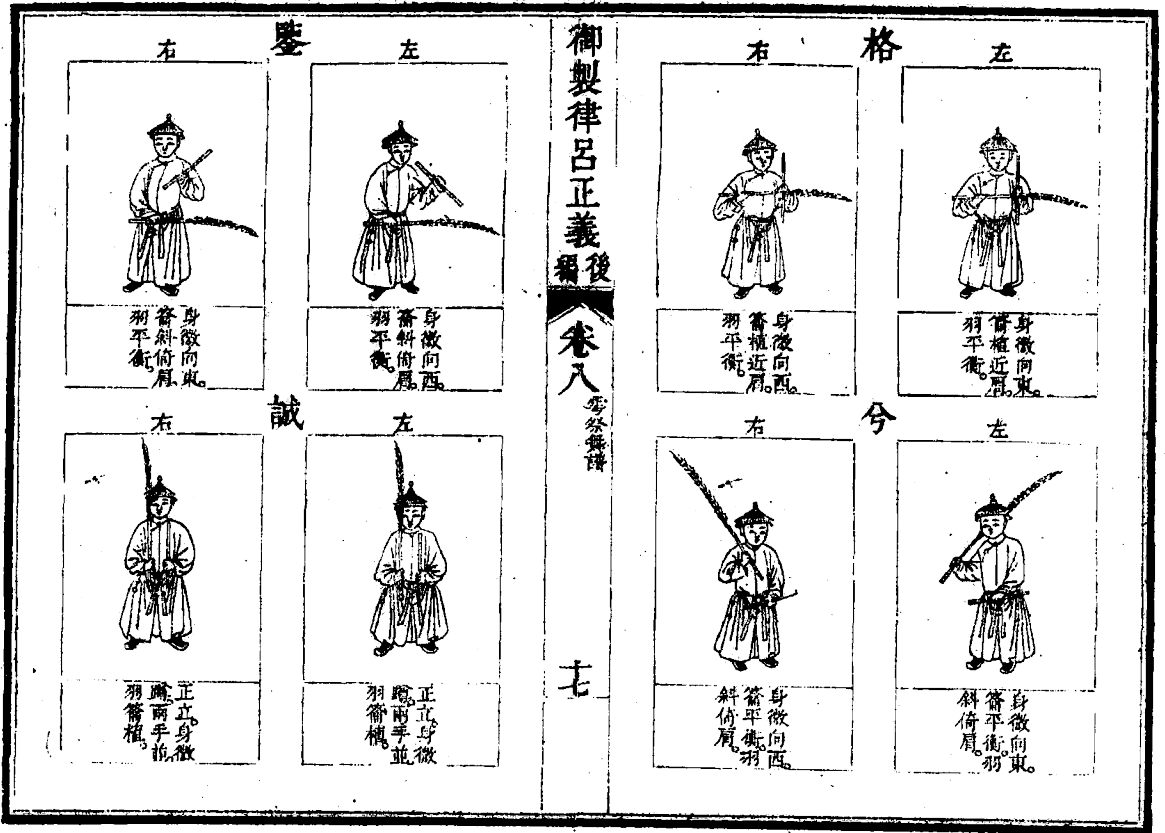 格
左
身微向東。
籥植近肩。
羽平衡。
右
身微向西。
籥植近肩。
羽平衡。
兮
左
身微向東。
籥平衡。羽
斜倚肩。
右
身微向西。
籥平衡。羽
斜倚肩。
御製律呂正義後編
卷八
雩祭舞譜
十七
鑒
左
身微向西。
籥斜倚肩。
羽平衡。
右
身微向東。
籥斜倚肩。
羽平衡。
誠
左
正立。身微
蹲。兩手並
羽籥植。
右
正立。身微
蹲。兩手並
羽籥植。